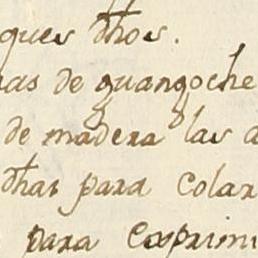 ques dhos.
as de guangoche
de madera las d
dhas para colar
para exprimi